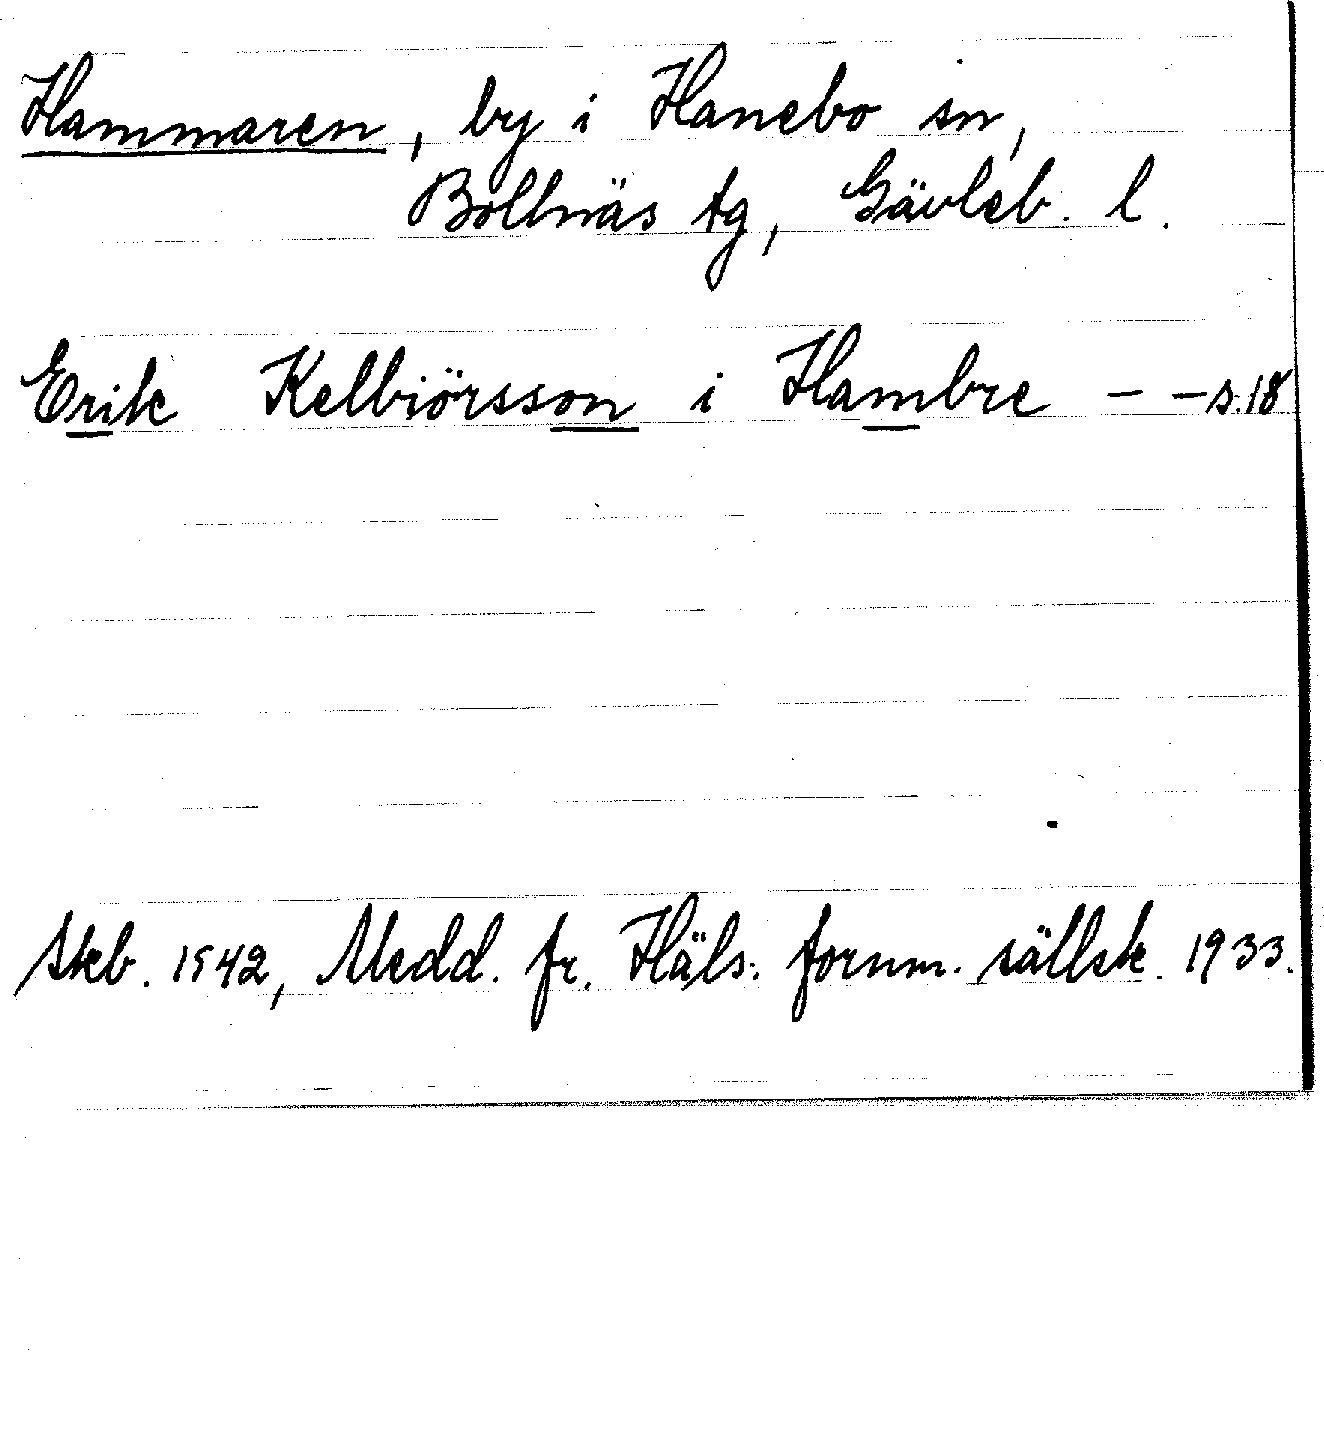 Hammaren, by i Hanebo sn,
Bollnäs tg, Gävleb. l.
Erik Kelbiörsson i Hambre – – s. 18
Skb. 1542, Medd. fr. Häls. fornm. sällsk. 1933.